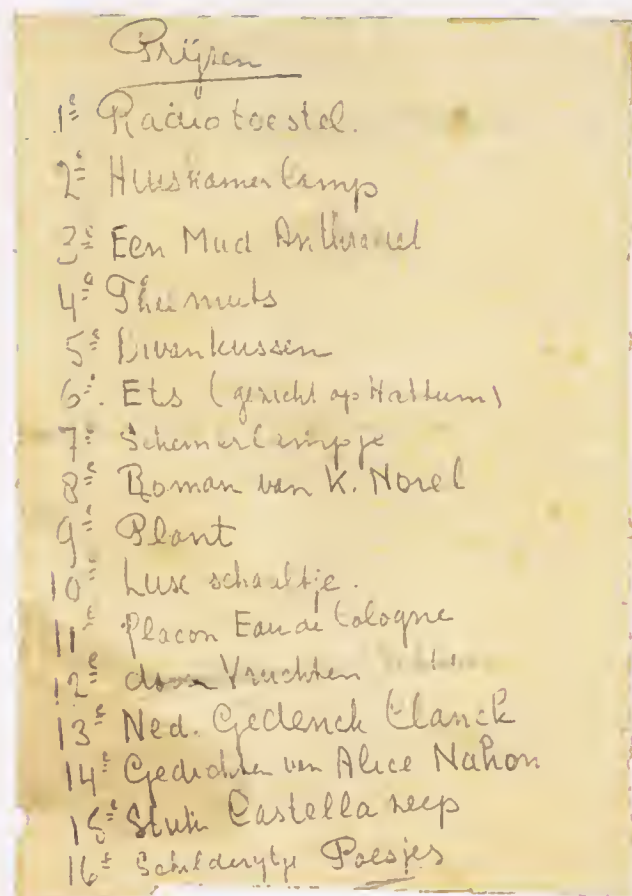 Prijzen
1e Radio toestel.
2e Huiskamer lamp
3e Een Mud Anthraciet
4e Theemuts
5e Divankussen
6e. Ets (gezicht op Hattum)
7e Schemerlampje
8e Roman van K. Norel
9e Plant
10e Luxe schaaltje.
11e Flacon Eau de Cologne
12e doos Vruchten
13e Ned. Gedenck Clanck
14e Gedichten van Alice Nahon
15e Stuk Castella zeep
16e Schilderytje Poesjes